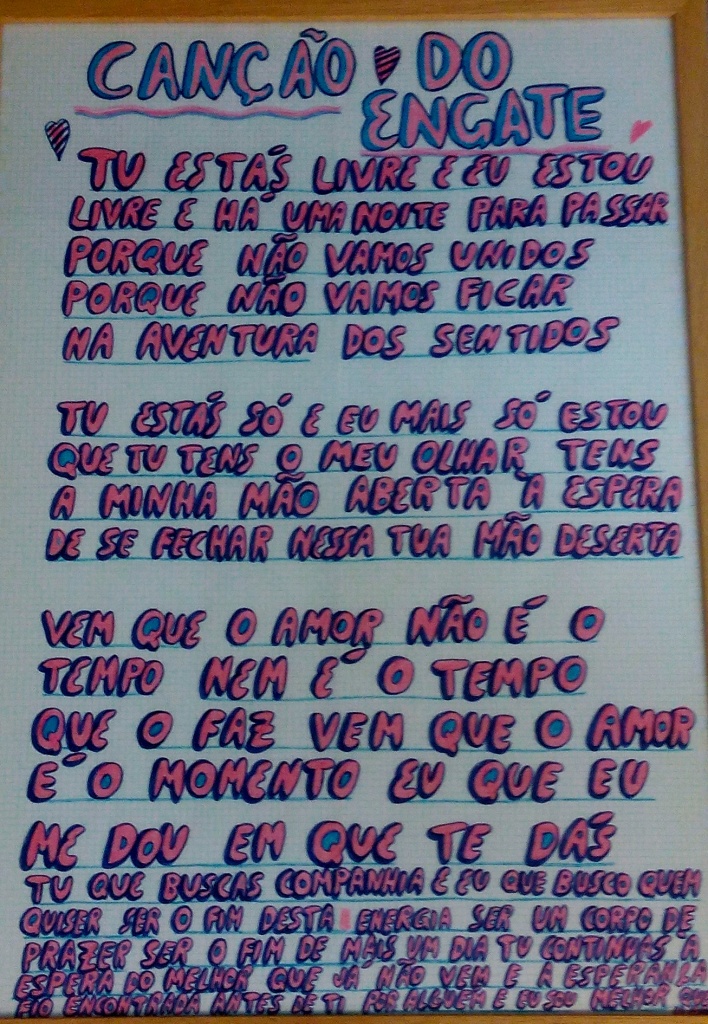 CANÇÃO DO
ENGATE
TU ESTÁS LIVRE E EU ESTOU
LIVRE E HÁ UMA NOITE PARA PASSAR
PORQUE NÃO VAMOS UNIDOS
PORQUE NÃO VAMOS FICAR
NA AVENTURA DOS SENTIDOS
TU ESTÁS SÓ E EU MAIS SÓ ESTOU
QUE TU TENS O MEU OLHAR TENS
A MINHA MÃO ABERTA À ESPERA
DE SE FECHAR NESSA TUA MÃO DESERTA
VEM QUE O AMOR NÃO É O
TEMPO NEM É O TEMPO
QUE O FAZ VEM QUE O AMOR
É O MOMENTO EU QUE EU
ME DOU EM QUE TE DÁS
TU QUE BUSCAS COMPANHIA E EU QUE BUSCO QUEM
QUISER SER O FIM DESTA ENERGIA SER UM CORPO DE
PRAZER SER O FIM DE MAIS UM DIA TU CONTINUAS À
ESPERA DO MELHOR QUE JÁ NÃO VEM E A ESPERANÇA
FOI ENCONTRADA ANTES DE TI POR ALGUÉM E EU SOU MELHOR QUE